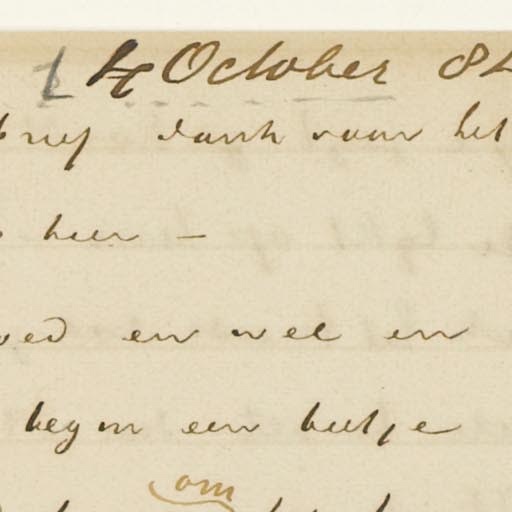 4 October 84
brief dank voor het
hier –
goed en wel en
begin een beetje
om